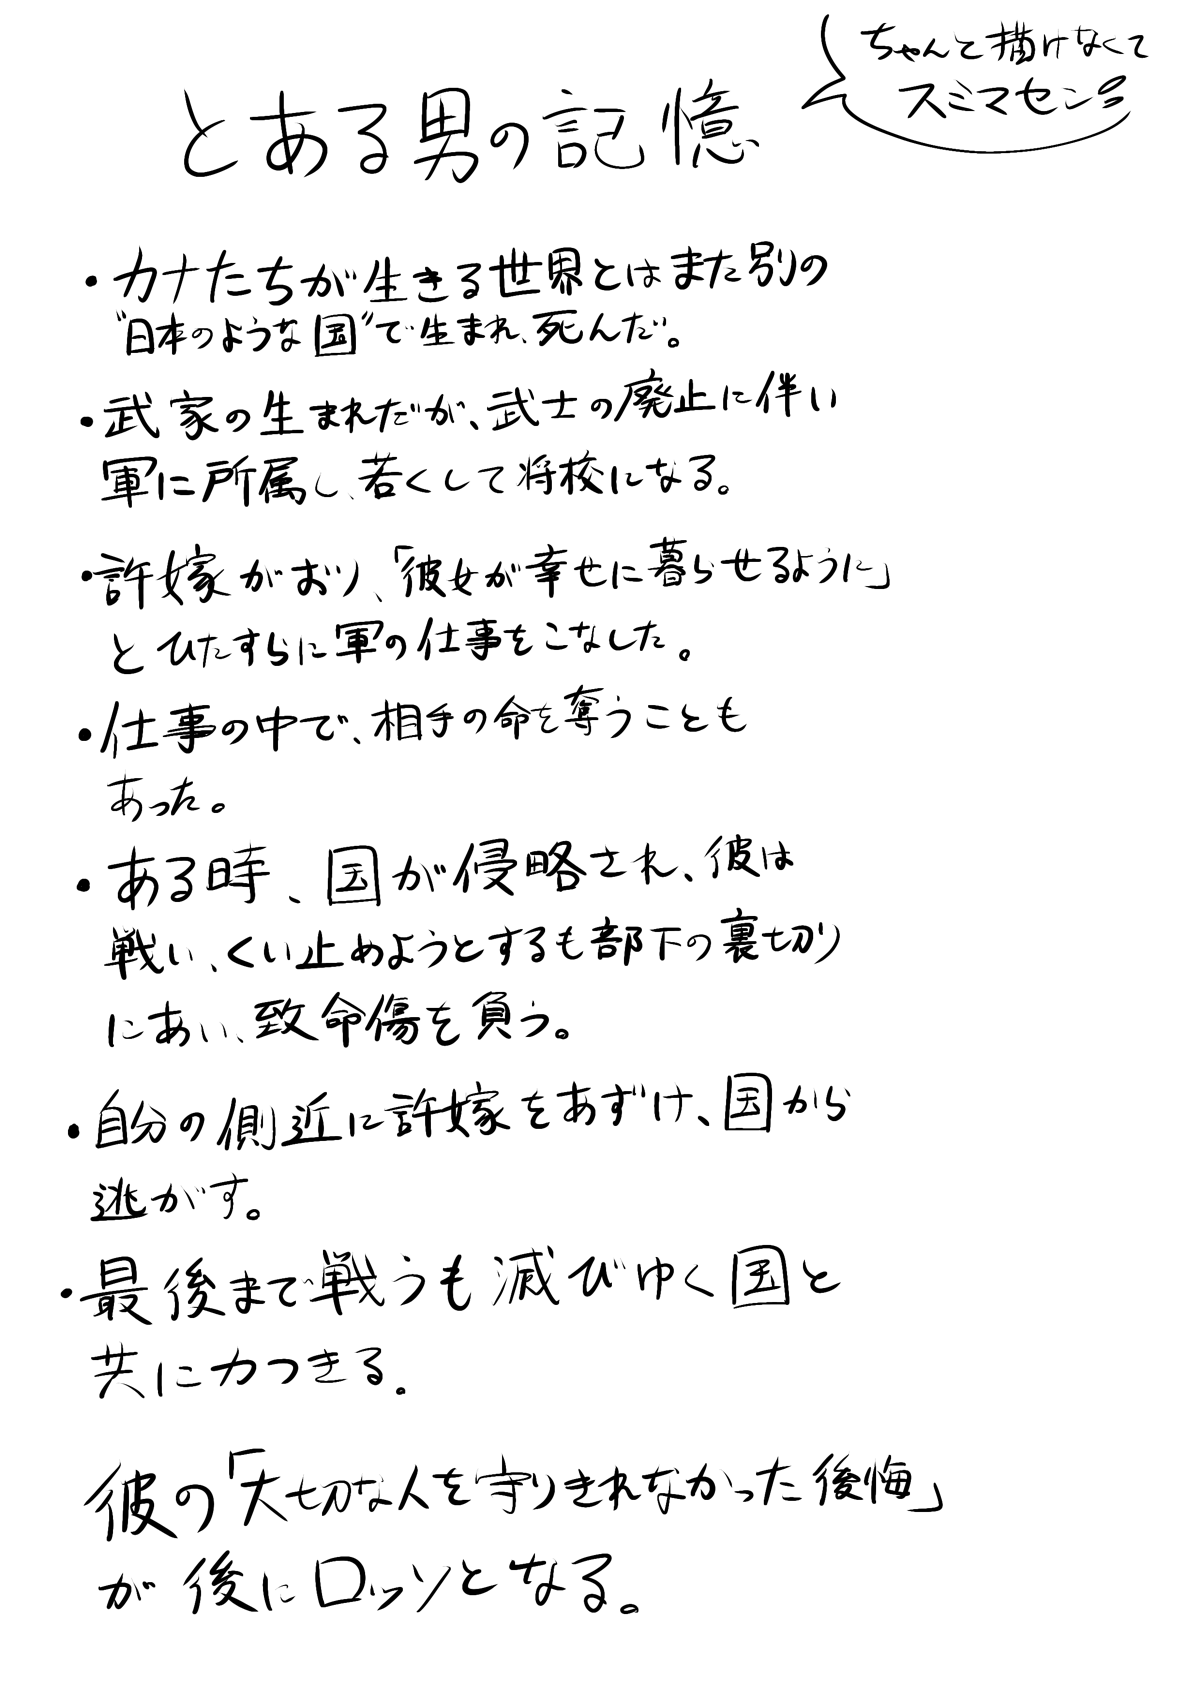 ちゃんと描けなくて
スミマセン
とある男の記憶
・カナたちが生きる世界とはまた別の
“日本のような国”で生まれ、死んだ。
・武家の生まれだが、武士の廃止に伴い
軍に所属し、若くして将校になる。
・許嫁がおり、「彼女が幸せに暮らせるように」
とひたすらに軍の仕事をこなした。
・仕事の中で、相手の命を奪うことも
あった。
・ある時、国が侵略され、彼は
戦い、くい止めようとするも部下の裏切り
にあい、致命傷を負う。
・自分の側近に許嫁をあずけ、国から
逃がす。
・最後まで戦うも滅びゆく国と
共に力つきる。
彼の「大切な人を守りきれなかった後悔」
が後にロッソとなる。